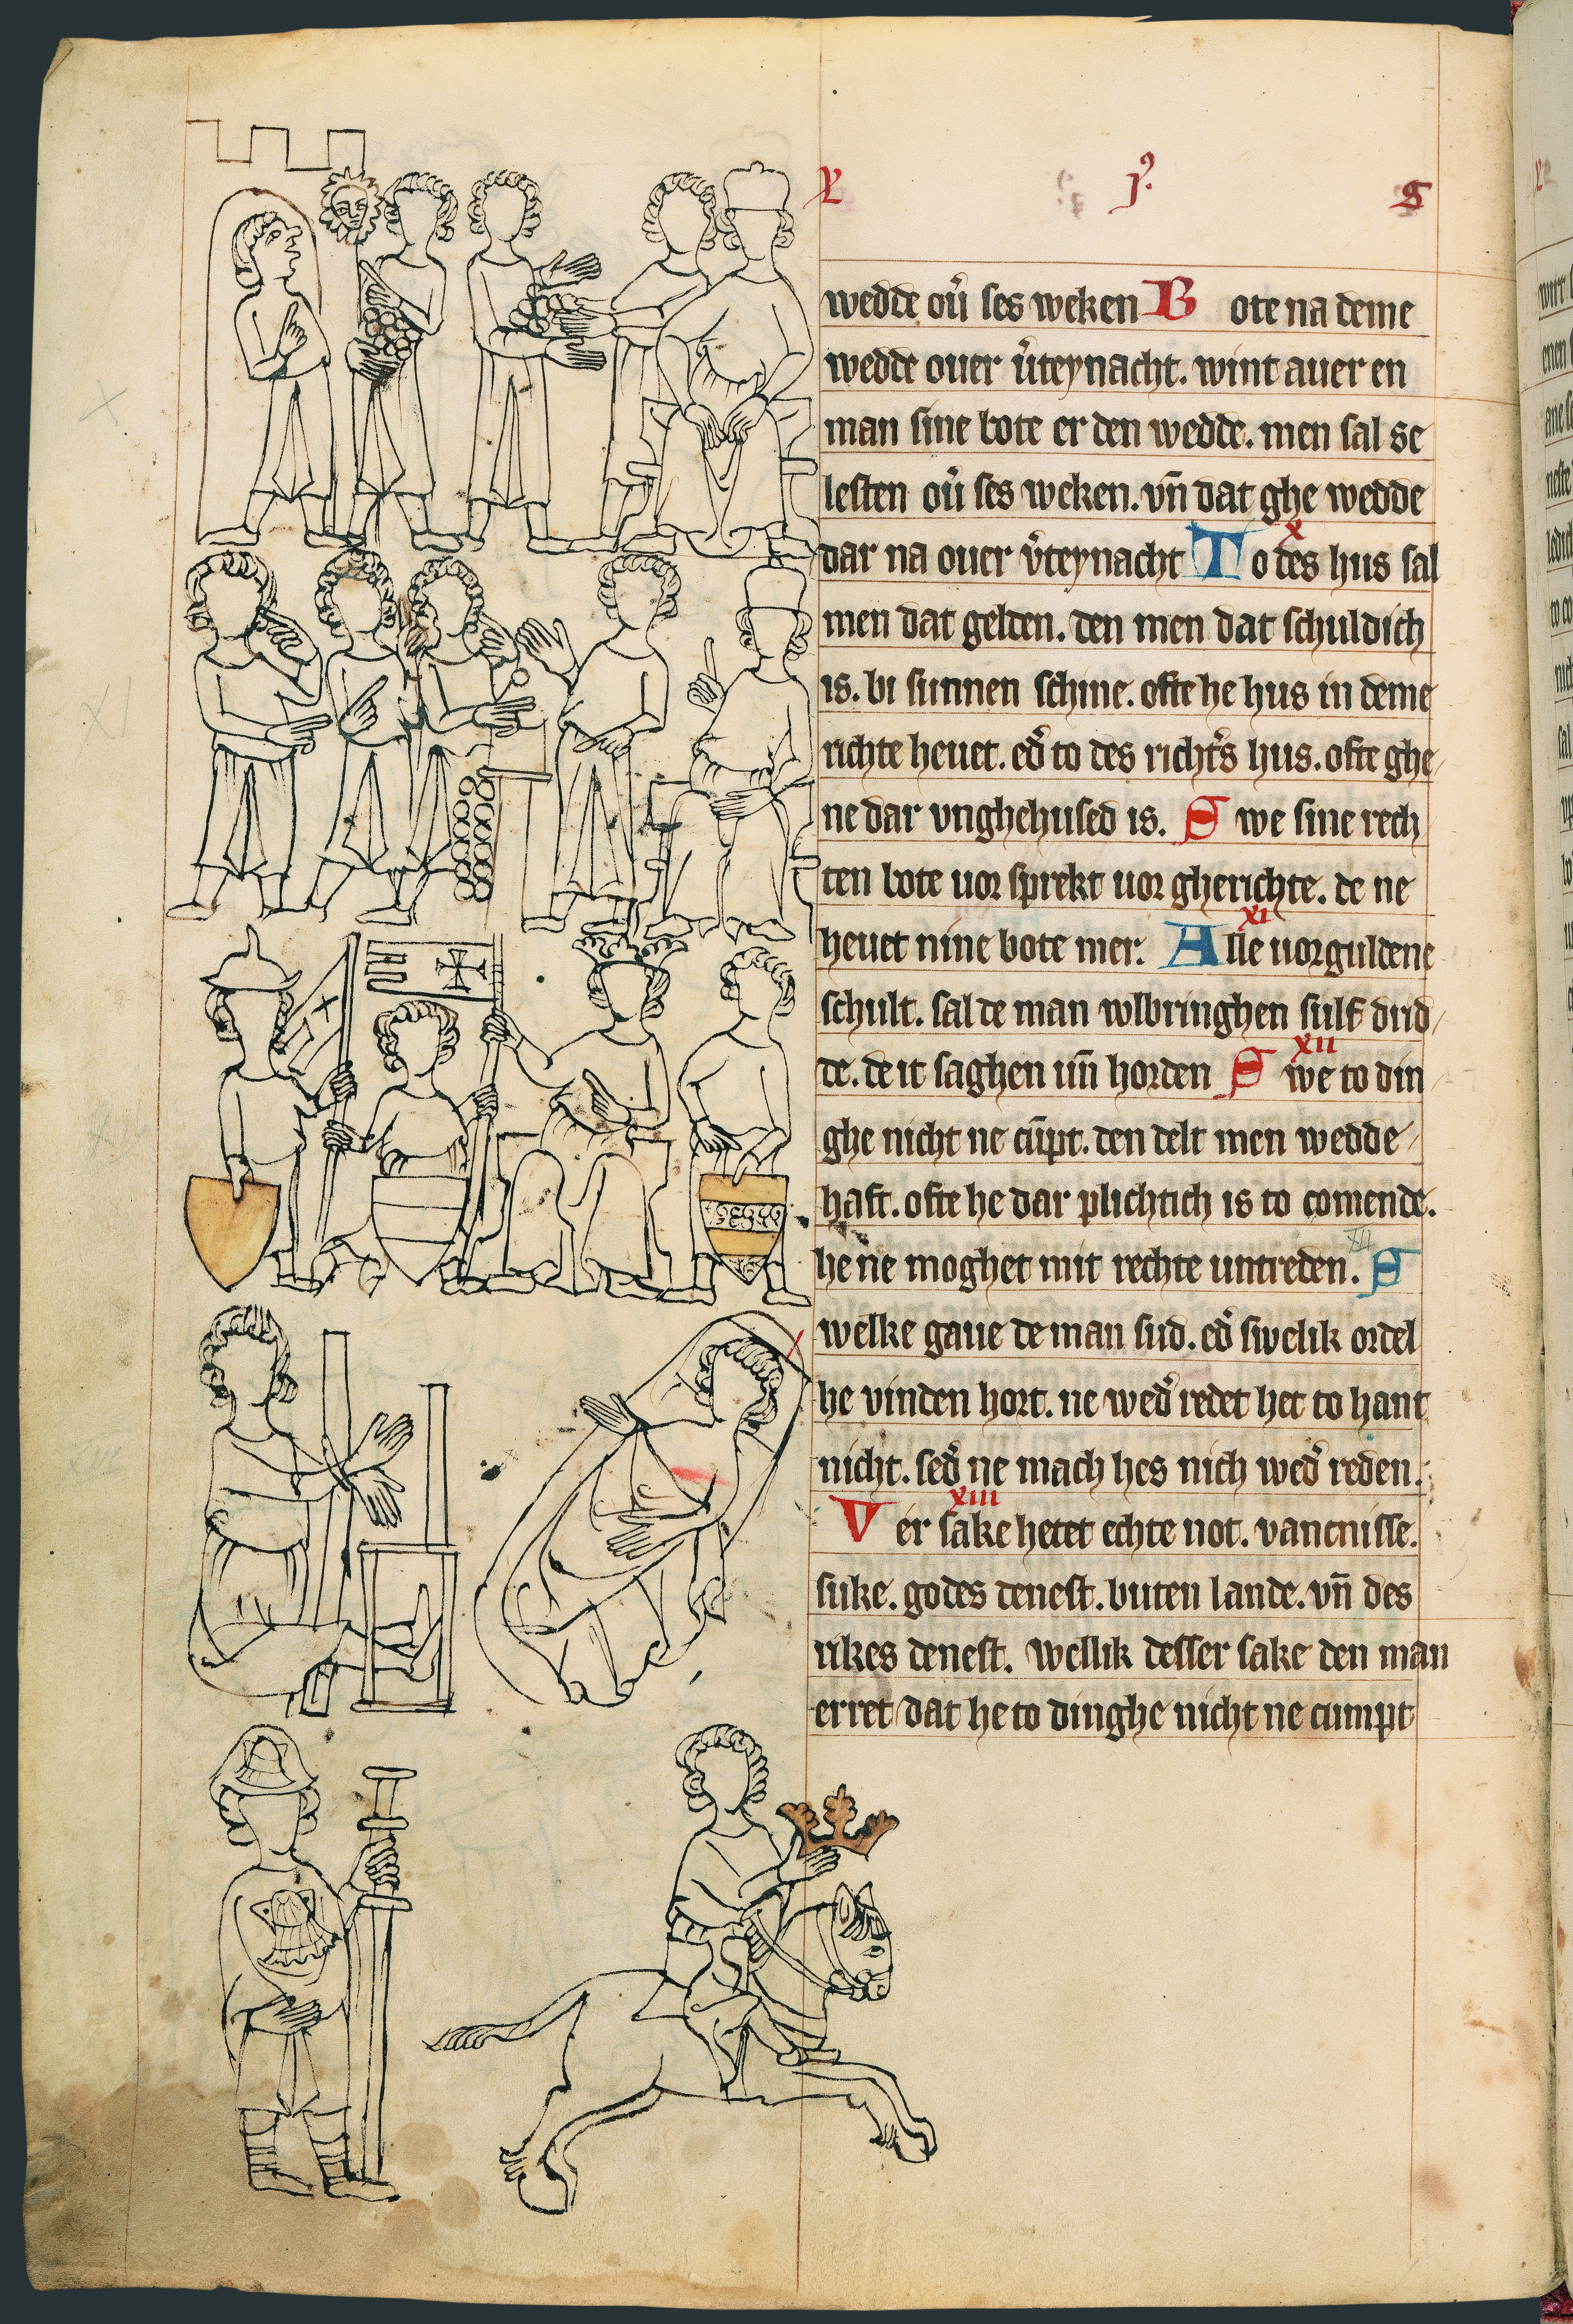 wedde ou̾ ses weken B ote na deme
wedde ouer v̾teynacht. wint auer en
man sine bote er den wedde. men sal se
lesten ou̾ ses weken. vn̄ dat ghe wedde
x
dar na ouer v̾teynacht T o des hus sal
men dat gelden. den men dat schuldich
is. bi sunnen schine. ofte he hus in deme
richte heuet. ed̾ to des richt̾s hus. ofte ghe
ne dar vnghehused is. S we sine rech
ten bote uor sprekt uor gherichte. de ne
xi
heuet nine bote mer. A lle uorguldene
schult. sal de man wlbringhen sulf drid
xii
de. de it saghen un̄ horden S we to din
ghe nicht ne cu̅pt. den delt men wedde
haft. ofte he dar plichtich is to comende.
he ne moghet mit rechte untreden. S
welke gaue de man sud. ed̾ swelik ordel
he vinden hort. ne wed̾ redet het to hant
nicht. sed̾ ne mach hes nich wed̾ reden.
xiii
V er sake hetet echte not. vancnisse.
suke. godes denest. buten lande. vn̄ des
rikes denest. wellik desser sake den man
erret dat he to dinghe nicht ne cumpt